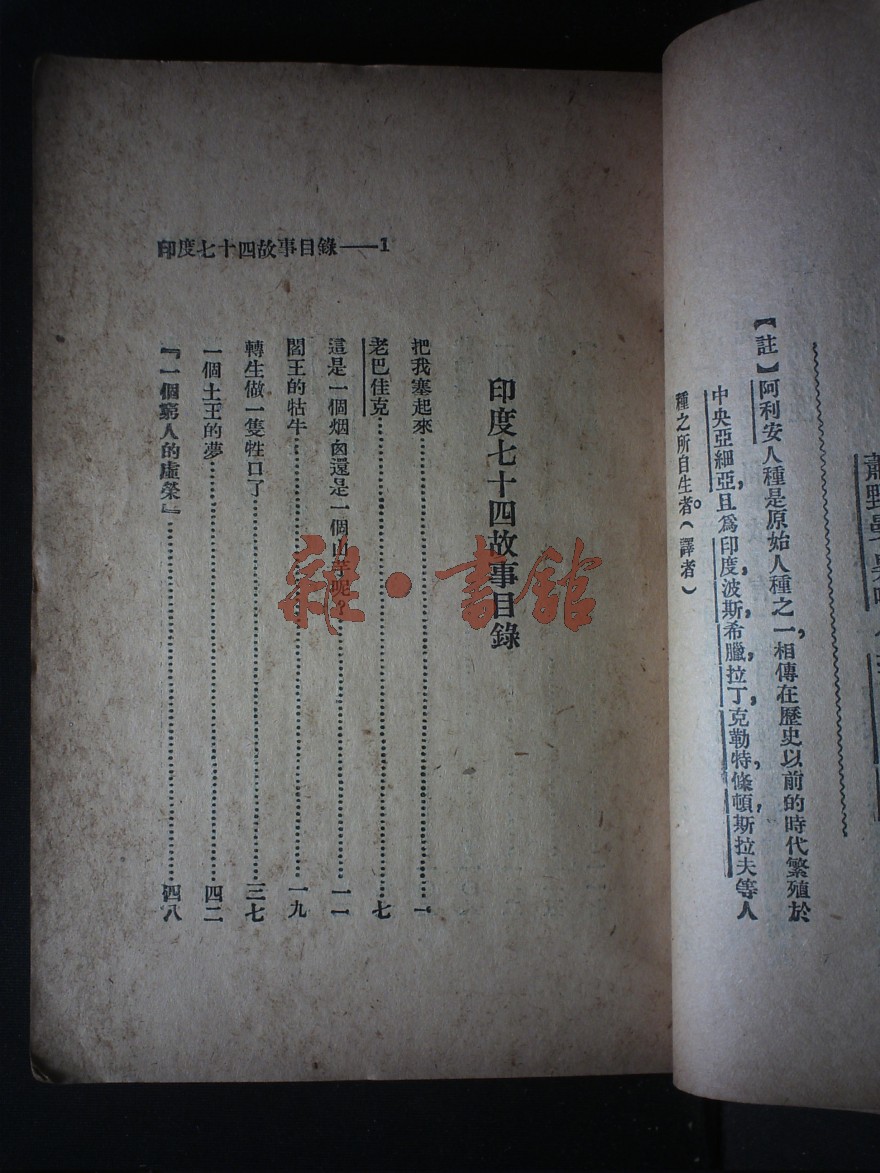 【註】阿利安人種是原始人種之一,相傳在歷史以前的時代繁殖於
中央亞細亞,且爲印度,波斯,希臘,拉丁,克勒特,條頓,斯拉夫等人
種之所自生者。(譯者)
印度七十四故事目錄——1
印度七十四故事目錄
把我塞起來……一
老巴佳克……七
這是一個烟囪還是一個山芋呢?……一一
閻王的牯牛……一九
轉生做一隻牲口了……三七
一個土王的夢……四二
『一個窮人的虛榮』……四八
雜·書館